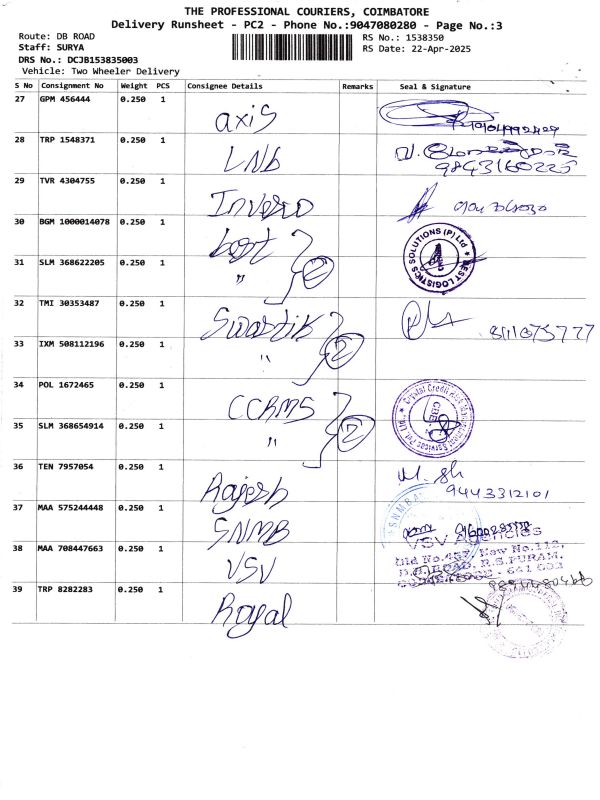 THE PROFESSIONAL COURIERS, COIMBATORE
Delivery Runsheet - PC2 - Phone No.:9047080280 - Page No.:3
Route: DB ROAD
RS No.: 1538350
Staff: SURYA
RS Date: 22-Apr-2025
DRS No.: DCJB153835003
Vehicle: Two Wheeler Delivery
S No Consignment No Weight PCS Consignee Details Remarks Seal & Signature
27 GPM 456444 0.250 1 axis
28 TRP 1548371 0.250 1 LNB
9843160225
29 TVR 4304755 0.250 1
30 BGM 1000014078 0.250 1 best
BEST LOGISTICS SOLUTIONS (P) Ltd
31 SLM 368622205 0.250 1 " 2
32 TMI 30353487 0.250 1 Swastik
33 IXM 508112196 0.250 1 " 2
34 POL 1672465 0.250 1 CCRMS
35 SLM 368654914 0.250 1 " 2
36 TEN 7957054 0.250 1 Rajesh
9443312101
37 MAA 575244448 0.250 1 SNMB
VSV Agencies
38 MAA 708447663 0.250 1 VSV
Old No.457, New No.112,
D.B.ROAD, R.S.PURAM,
COIMBATORE - 641 002
39 TRP 8282283 0.250 1 Royal